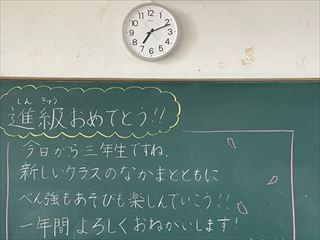 しん きゅう
進級おめでとう!!
今日から三年生ですね。
新しいクラスのなかまとともに
べん強もあそびも楽しんでいこう!!
一年間よろしくおねがいします!